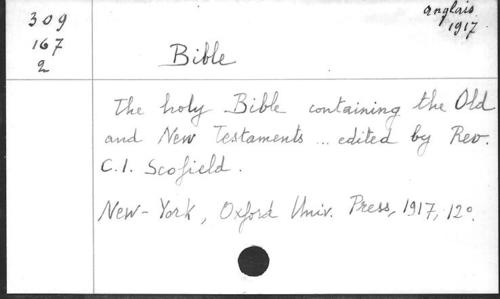 309
167
2
anglais
1917
Bible
The holy Bible containing the Old
and New Testaments ... edited by Rev.
C.I. Scofield.
New-York, Oxford Univ. Press, 1917, 12°.